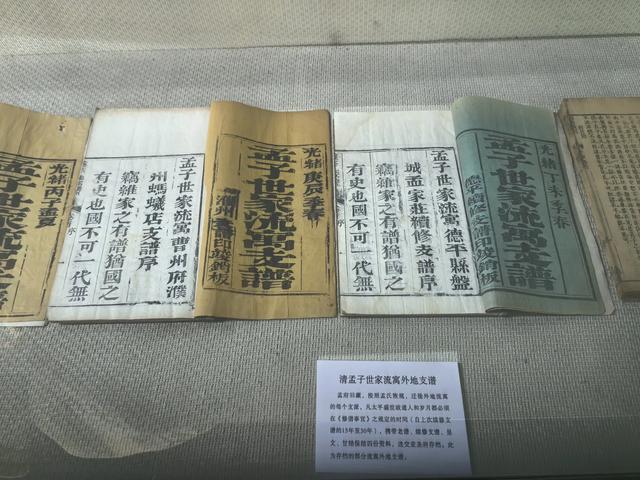 光緒丙子孟夏
孟子世家流寓支譜
光緒庚辰季春
孟子世家流寓支譜
濮州
印竣銷板
孟子世家流寓曹州府濮
州螞蟻店支譜序
竊維家之有譜猶國之
有史也國不可一代無
光緒丁未季春
孟子世家流寓支譜
德平續修支譜印竣銷板
孟子世家流寓德平縣盤
城孟家莊續修支譜序
竊維家之有譜猶國之
有史也國不可一代無
清孟子世家流寓外地支谱
孟府旧藏，按照孟氏族规，迁徙外地流寓
的每个支派，凡太平盛世政通人和岁月都必须
在《修谱事宜》之规定的时间（自上次续修支
谱的15年至30年），携带老谱、续修支谱、呈
文、甘结保结四份资料，送交亚圣府存档。此
为存档的部分流寓外地支谱。